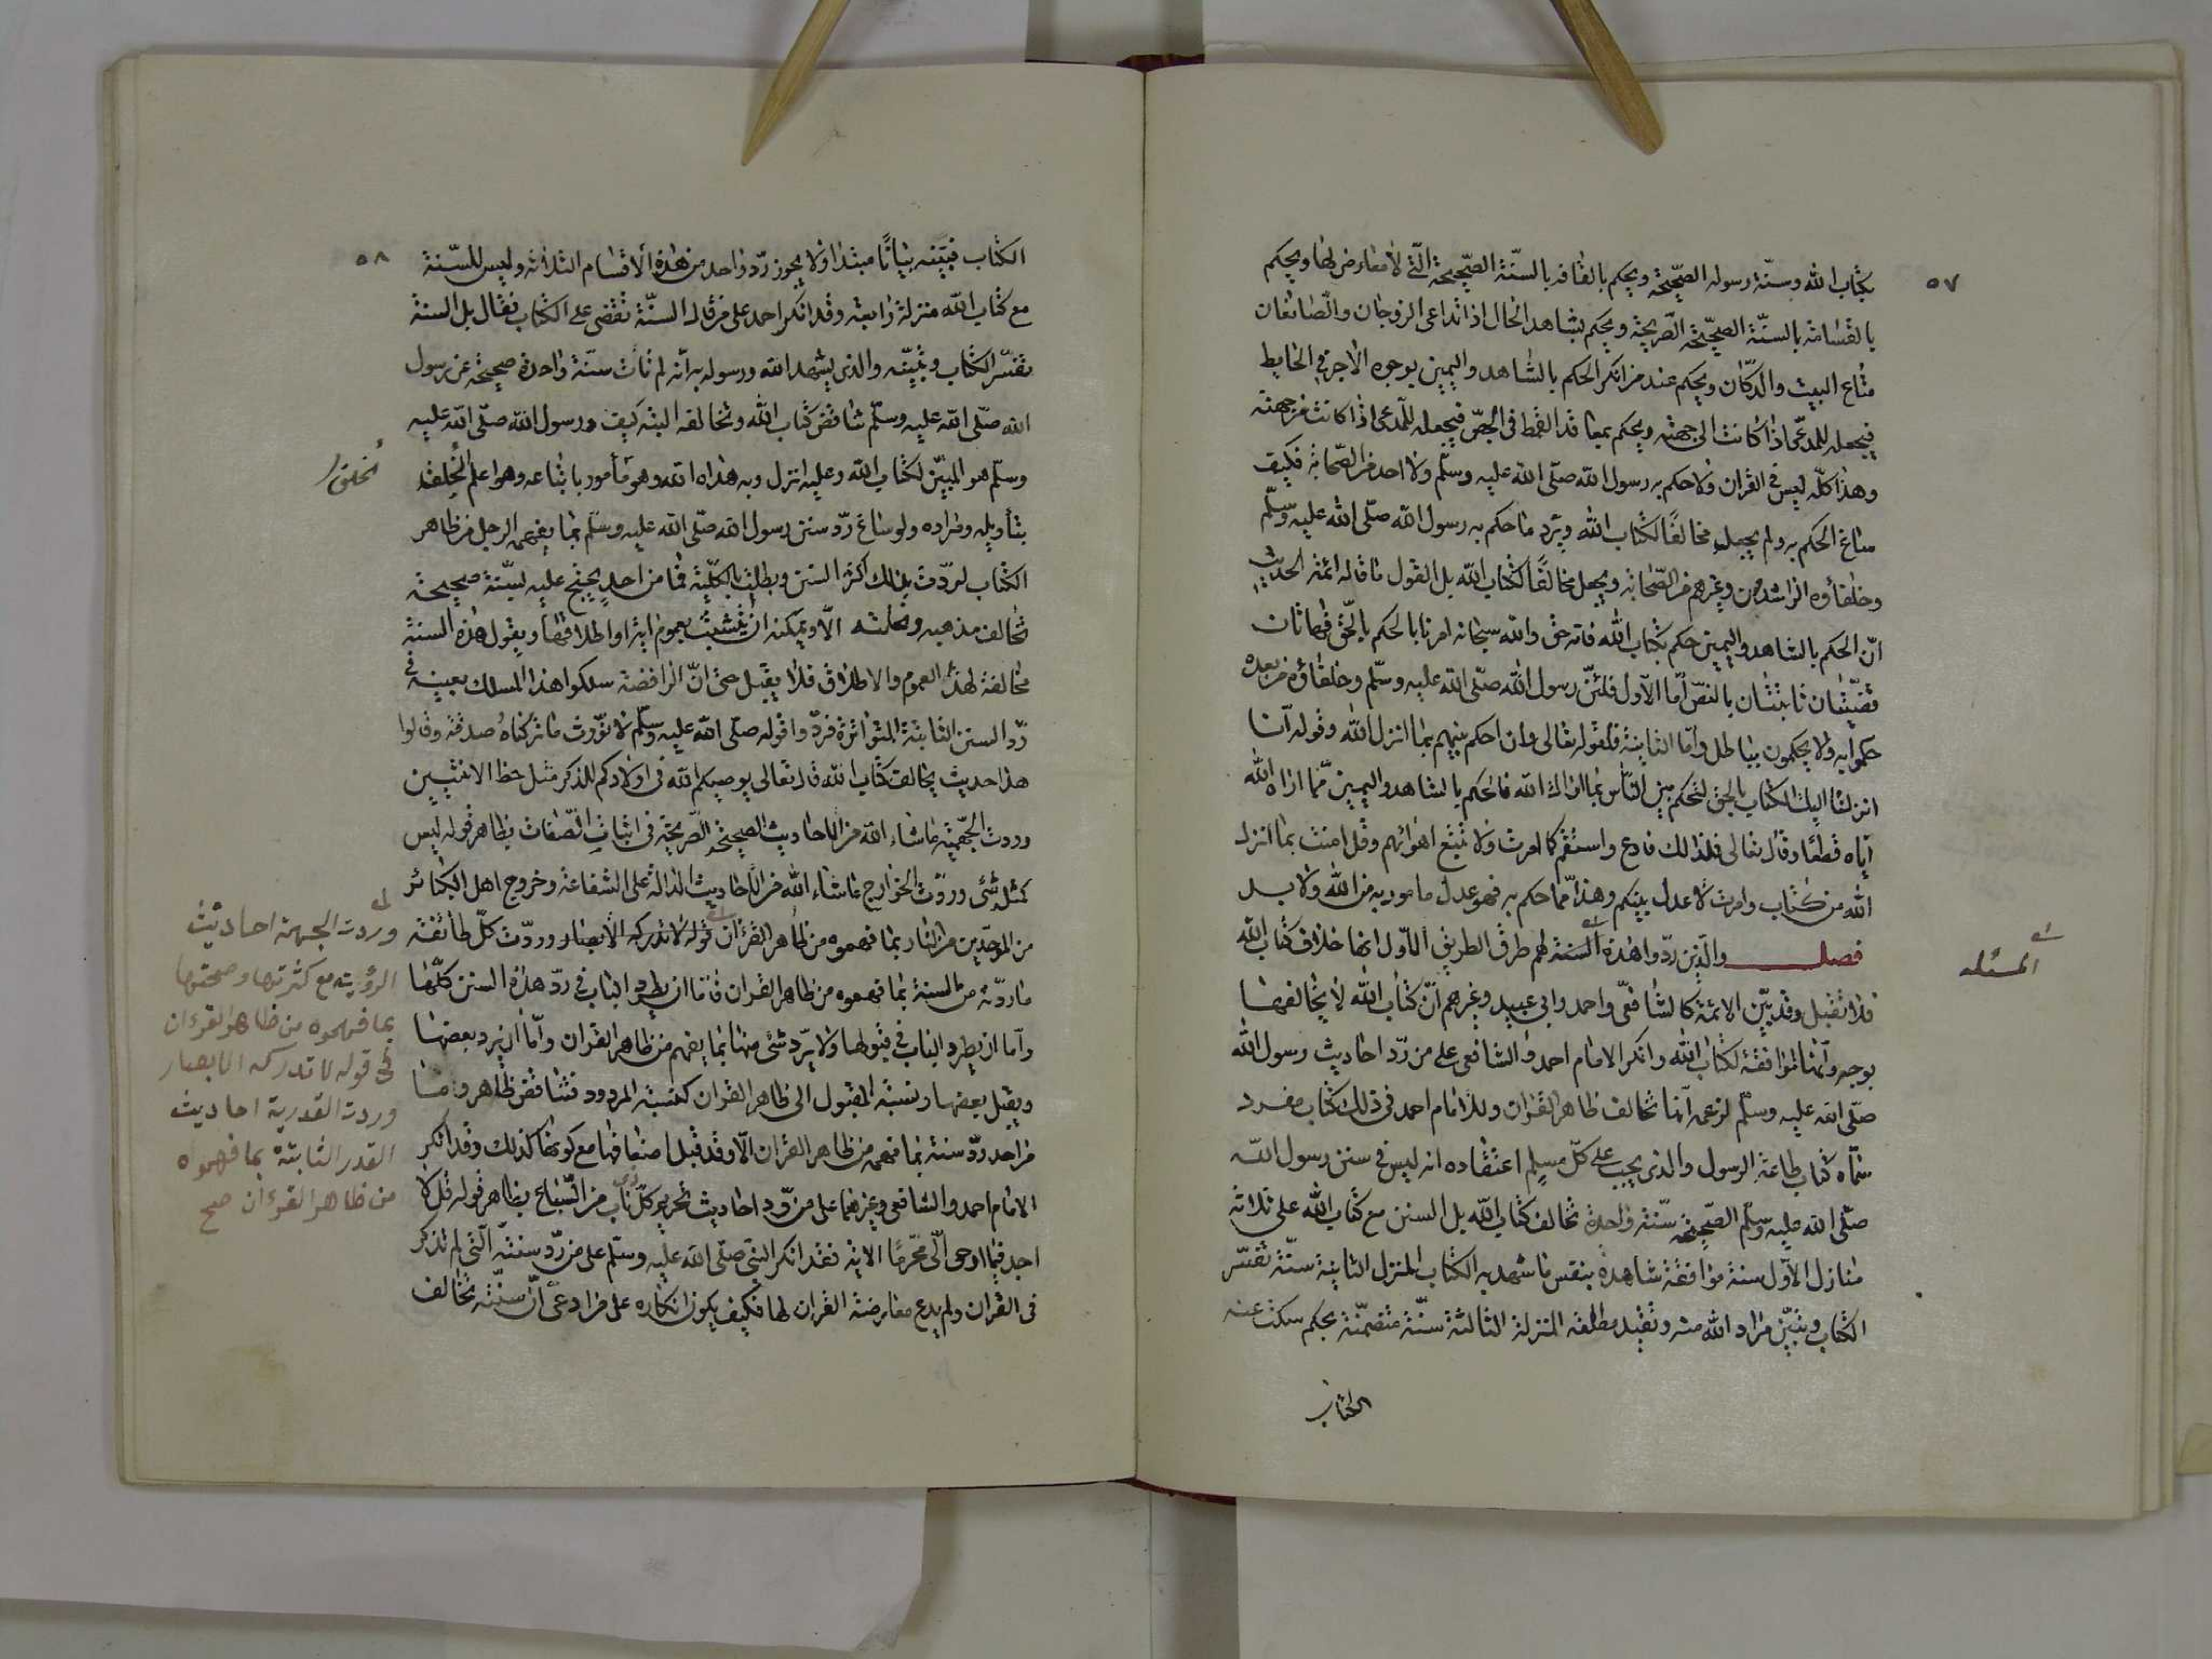 ٥٧
بكتاب الله وسنّة رسوله الصّحيحة ويحكم بالقافة بالسنّة الصّحيحة الّتي لا معارض لها ويحكم
بالقسامة بالسنّة الصحيّحة الصّريحة ويحكم بشاهد الحال اذا تداعى الزوجان والصّانعان
متاع البيت والدكّان ويحكم عند من انكر الحكم بالشّاهد واليمين بوجوه الاجر في الحايط
فيجعله للمدعّى اذا كانت الى جهته ويحكم بمعاقد القمط فى الخصّ فيجعله للمدعى اذا كانت من جهته
وهذا كلّه ليس فى القران ولا حكم به رسول الله صلّى الله عليه وسلّم ولا احد من الصّحابة فكيف
ساغ الحكم به ولم يجعله مخالفًا لكتاب الله ويرد ما حكم به رسول الله صلّى الله عليه وسلّم
وخلفاؤه الراشدون وغيرهم من الصّحابة ويجعل مخالفًا لكتاب الله بل القول ما قاله ائمة الحديث
انّ الحكم بالشاهد واليمين حكم بكتاب الله فانه حق والله سبحانه امرنا بالحكم بالحّق فهاتان
قضيّتان ثابتتان بالنصّ أمّا الأول فلئنّ رسول الله صلّى الله عليه وسلّم وخلفاؤه من بعده
حكموا به ولا يحكمون بباطل وأمّا الثانية فلقوله تعالى وان احكم بينهم بما انزل الله وقوله آنا
انزلنا اليك الكتاب بالحق لتحكم بين النّاس بما اراك الله فالحكم بالشاهد واليمين ممّا اراه الله
ايّاه قطعًا وقال تعالى فلذلك فادع واستقم كما امرت ولا تتبع اهوائهم وقل امنت بما انزل
الله من كتاب وامرت لاعدل بينكم وهذا ممّا حكم به فهو عدل مامور به من الله ولا بد
فصل والّذين ردّوا هذه السنة لهم طرق الطريق الأول انها خلاف كتاب الله
المسئله
فلا تقبل وقد بيّن الائمّة كالشافعّى واحمد وابى عبيد وغيرهم أنّ كتاب الله لا يخالفها
بوجه وأنها لموافقة لكتاب الله وانكر الامام احمد والشافعى على من ردّ احاديث رسول الله
صلّى الله عليه وسلّم لزعمه أنها تخالف ظاهر القران وللامام احمد فى ذلك كتاب مفرد
سمّاه كتاب طاعة الرسول والذى يجب على كلّ مسلم اعتقاده انه ليس فى سنن رسول الله
صلّى الله عليه وسلّم الصّحيحة سنّة واحدة تخالف كتاب الله بل السنن مع كتاب الله على ثلاثة
منازل الأول سنة موافقة شاهدة بنفس ما شهد به الكتاب المنزل الثانية سنّة تفسّر
الكتاب وتبيّن مراد الله منه وتقيد مطلقه المنزلة الثالثة سنّة متضمّنة بحكم سكت عنه
الكتاب
٥٨
الكتاب فبيّنه بيانًا مبتدا ولا يجوز ردّ واحد من هذه الأقسام الثلاثه وليس للسّنة
مع كتاب الله منزلة رابعة وقد انكر احمد على من قال السنّة تقضى على الكتاب فقال بل السنة
تفسّر الكتاب وتبيّنه والذى يشهد الله ورسوله به أنّه لم تات سنّة واحدة صحيحة عن رسول
الله صلّى الله عليه وسلّم تناقض كتاب الله وتخالفه البتة كيف ورسول الله صلّى الله عليه
وسلّم هو المبيّن لكتاب الله وعليه انزل وبه هداه الله وهو مأمور باتباعه وهو اعلم الخلق
بتأويله ومراده ولو ساغ ردّ سنن رسول الله صلّى الله عليه وسلّم بما يفهمه الرجل من ظاهر
الكتاب لردّت بذلك أكثر السنن وبطلت بالكلّية فما من احدٍ يحتج عليه بسنّة صحيحة
تخالف مذهبه ونحلته الّا ويمكنه ان يتشبث بعموم اية او اطلاقها ويقول هذه السنة
مخالفة لهذا العموم والاطلاق فلا يقبل حتى انّ الرافضة سلكوا هذا المسلك بعينه فى
ردّ السنن الثابتة المتواترة فردّوا قوله صلّى الله عليه وسلّم لا نوّرث ما تركناه صدقة وقالوا
هذا حديث يخالف كتاب الله قال تعالى يوصيكم الله فى اولادكم للذكر مثل حظ الانثيين
وردت الجهميّة ما شاء الله من الاحاديث الصحيحة الصّريحة فى اثبات الصّفات بظاهر قوله ليس
كمثله شئ وردّت الخوارج ما شاء الله من الاحاديث الدالة على الشفاعة وخروج اهل الكبائر
من الموحّدين من النار بما فهموه من ظاهر القرآن قوله لا تدركه الأبصار وردّت كلّ طائفة
ما ردّته من السنة بما فهموه من ظاهر القران فامّا ان يطرد الباب فى ردّ هذه السنن كلّها
وأما ان يطرد الباب فى قبولها ولا يردّ شئ منها بما يفهم من ظاهر القران وأمّا ان يرد بعضها
ويقبل بعضها ونسبة المقبول الى ظاهر القران كنسبة المردود فتناقض ظاهر وما
من احد ردّ سنة بما فهمه من ظاهر القران الّا وقد قبل اضعافها مع كونها كذلك وقد انكر
الامام احمد والشافعى وغيرهما على من ردّ احاديث تحريم كلّ ذى ناب من السّباع بظاهر قوله قل لا
اجد فيما اوحى الىّ محرّمًا الاية فقد انكر النبى صلّى الله عليه وسلّم على من ردّ سنته الّتي لم تذكر
فى القران ولم يدع معارضة القران لها فكيف يكون انكاره على من ادعى أنّ سنّته تخالف
الخلق
وردت الجهمية احاديث
الرؤيته مع كثرتها وصحتها
بما فهموه من ظاهر القرءان
فى قوله لا تدركه الابصار
وردت القدرية احاديث
القدر الثابتة بما فهموه
من ظاهر القرءان صح